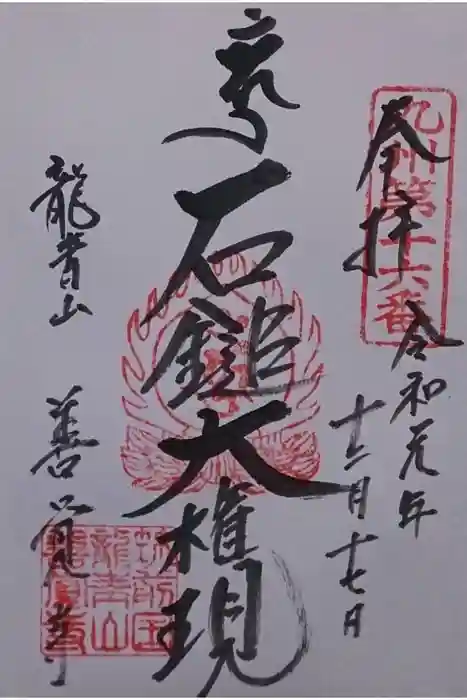 九州第十六番
奉拝
令和元年
十二月十七日
石鎚大権現
龍青山
善覚寺
筑前国
龍青山
善覚寺